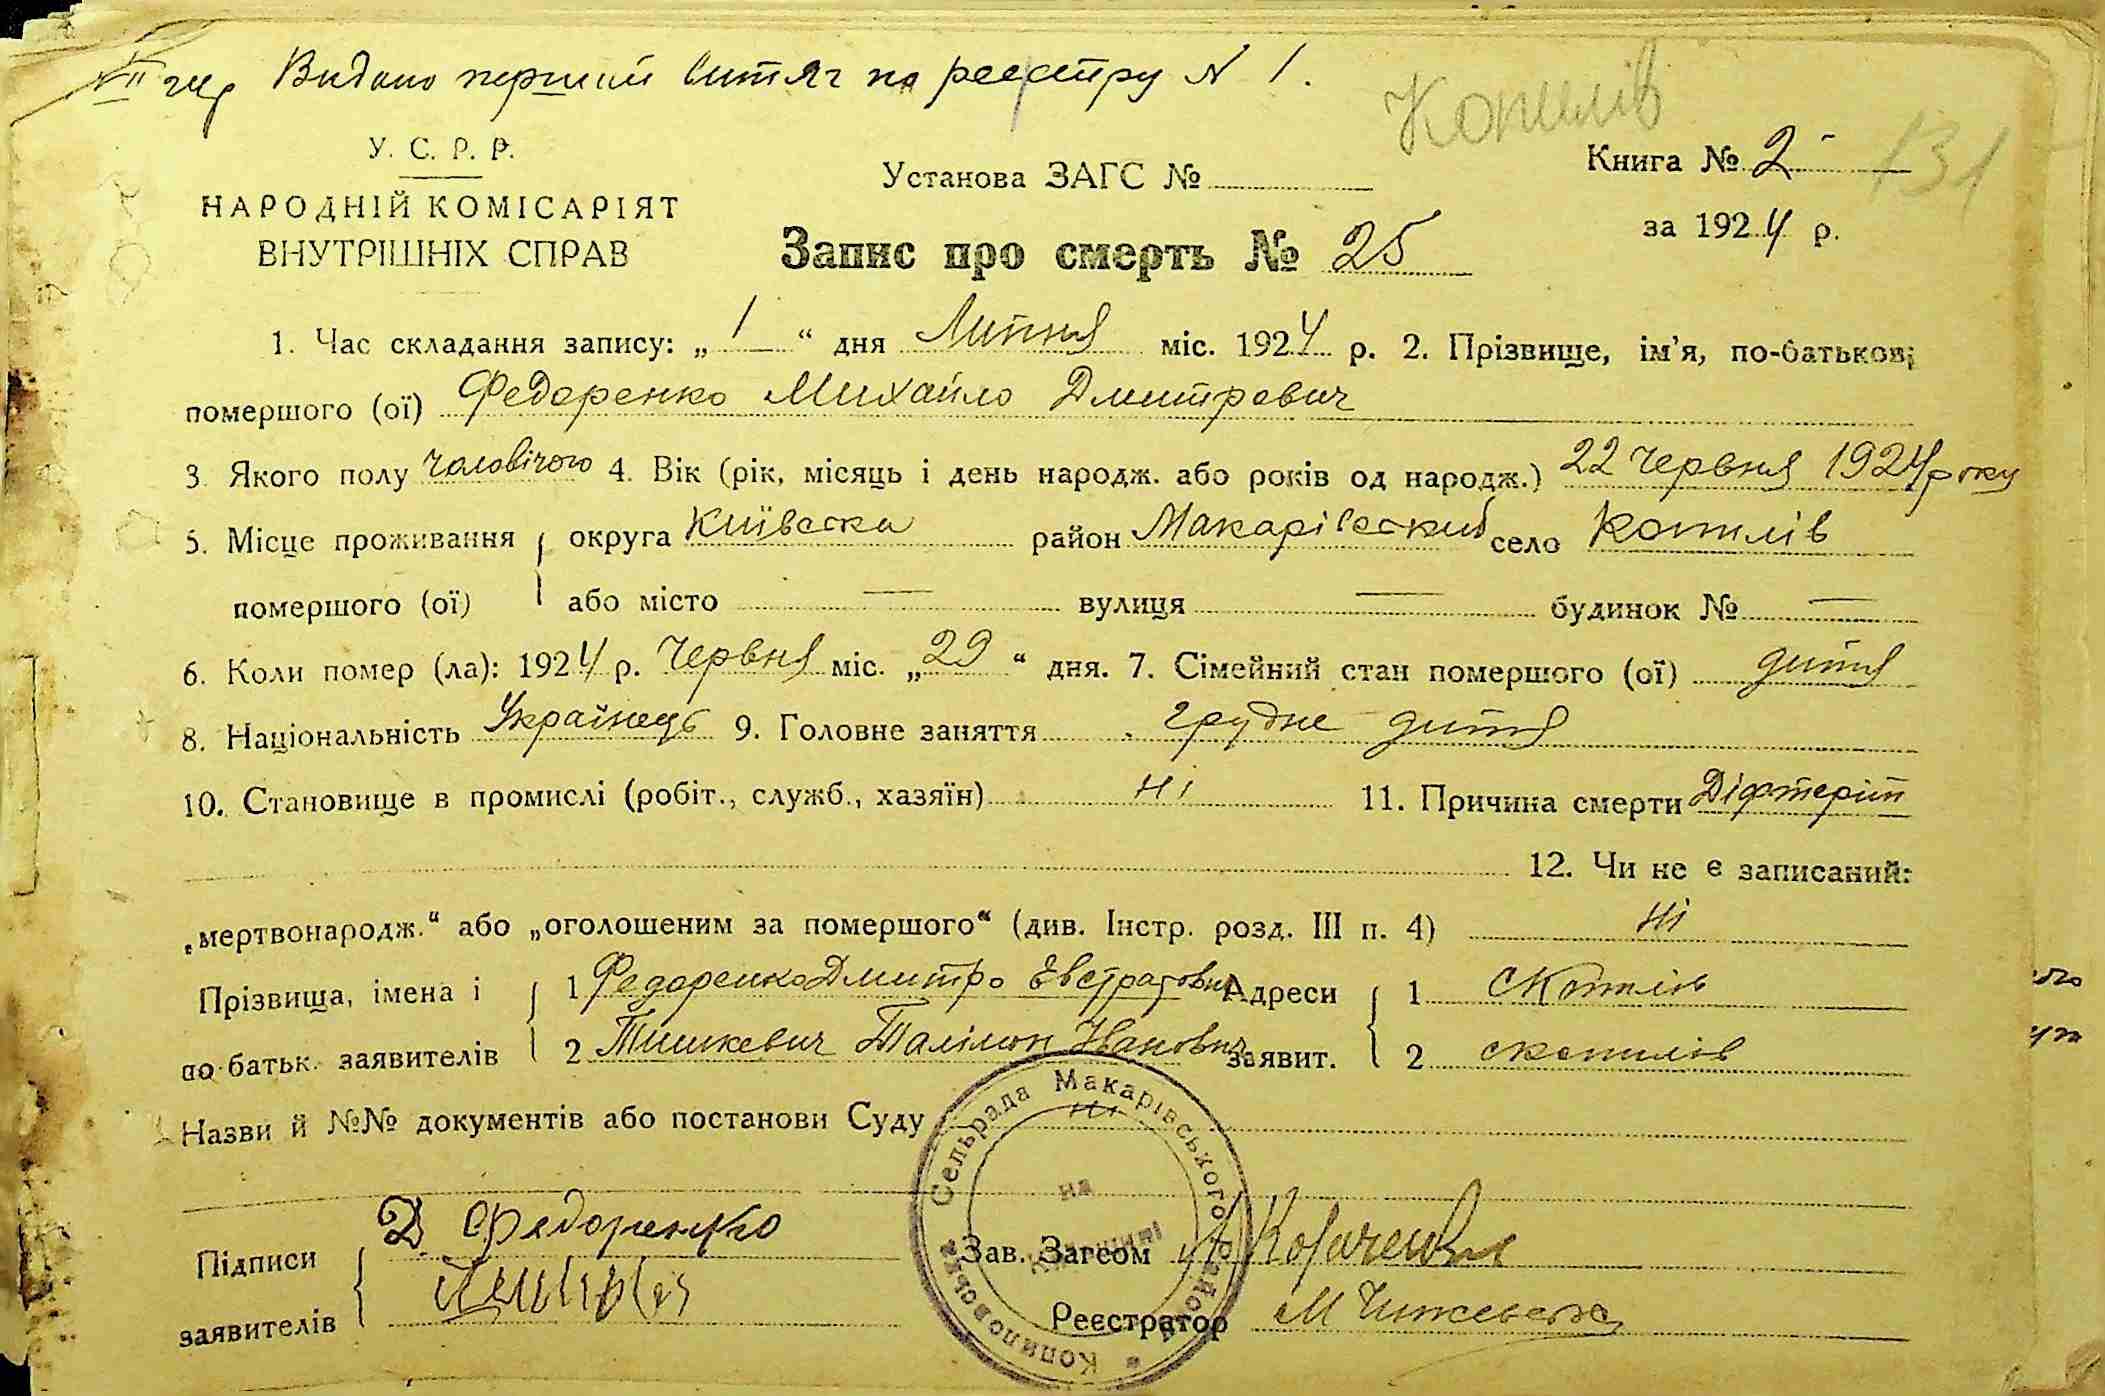 Видано перший витяг по реєстру № 1.
Копилів
131
У. С. Р. Р.
НАРОДНІЙ КОМІСАРІЯТ
ВНУТРІШНІХ СПРАВ
Установа ЗАГС №
Книга № 2
за 1924 р.
Запис про смерть № 25
1. Час складання запису: „ 1 “ дня Липня міс. 1924 р. 2. Прізвище, ім’я, по-батькові
помершого (ої) Федоренко Михайло Дмитрович
3. Якого полу чоловічого 4. Вік (рік, місяць і день народж. або років од народж.) 22 червня 1924 року
5. Місце проживання округа Київска район Макарівский село Копилів
помершого (ої) або місто — вулиця — будинок № —
6. Коли помер (ла): 1924 р. Червня міс. „ 29 “ дня. 7. Сімейний стан помершого (ої) дитя
8. Національність Українець 9. Головне заняття грудне дитя
10. Становище в промислі (робіт., служб., хазяїн) ні 11. Причина смерти Діфтеріт
12. Чи не є записаний:
„мертвонародж.“ або „оголошеним за помершого“ (див. Інстр. розд. III п. 4) ні
Прізвища, імена і 1 Федоренко Дмитро Евстратович Адреси 1 с Копилів
по батьк. заявителів 2 Тишкевич Талімон Иванович заявит. 2 с копилів
Назви й №№ документів або постанови Суду ні
Підписи Д Федоренко Зав. Загсом
заявителів Реєстратор М Чижевска
Копиловська Сельрада Макарівського Району
на